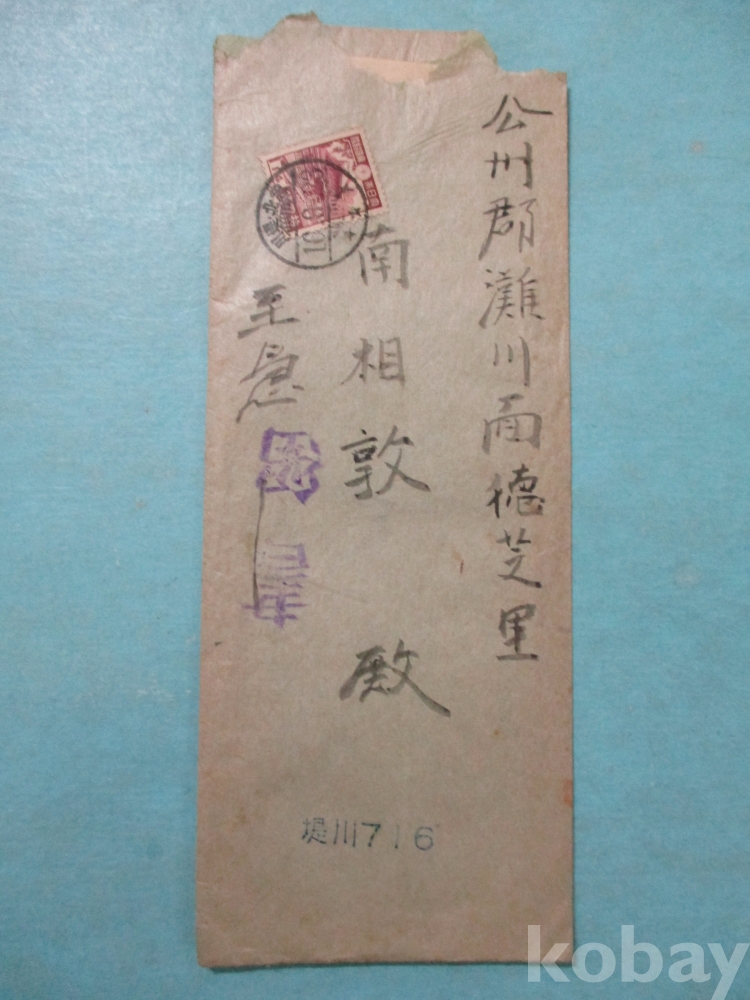 公州郡灘川面德芝里
南相敦 殿
至急
堤川716
kobay